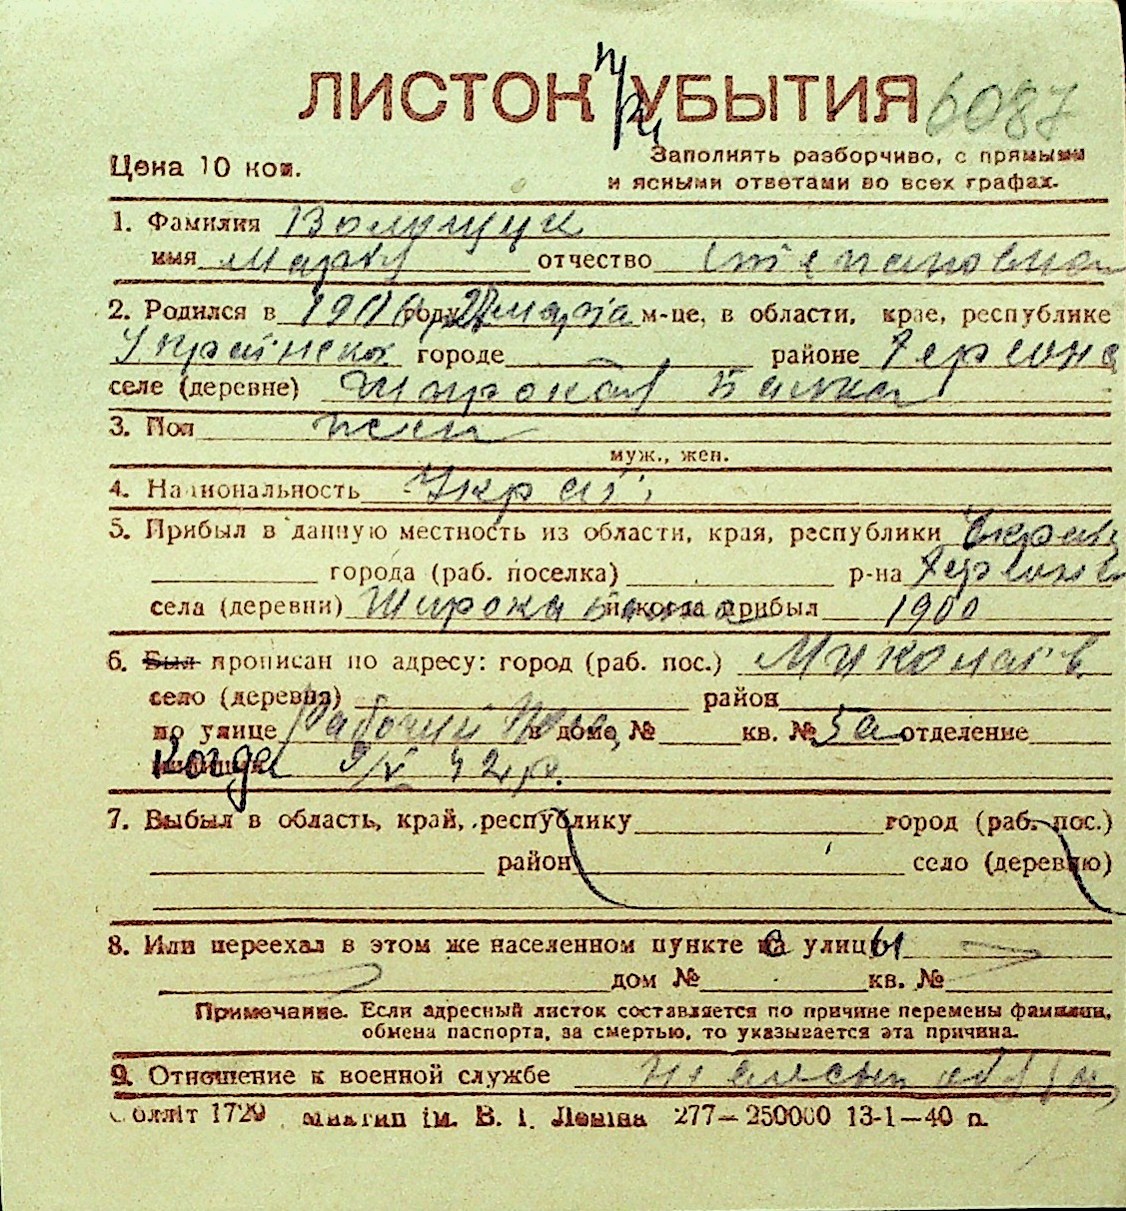 ЛИСТОК УБЫТИЯ 6087
Цена 10 коп.
Заполнять разборчиво, с прямыми
и ясными ответами во всех графах.
1. Фамилия
имя отчество Степановна
2. Родился в году марта м-це, в области, крае, республике
городе районе Херсона
селе (деревне) Широкая Балка
3. Пол жен
муж., жен.
4. Национальность Украї
5. Прибыл в данную местность из области, края, республики
города (раб. поселка) р-на
села (деревни) Широка и когда прибыл 1900
6. Был прописан по адресу: город (раб. пос.) Миколаїв
село (деревня) район
по улице Рабочий в доме № кв. № 5а отделение
Когда 9/V 42 р.
7. Выбыл в область, край, республику город (раб. пос.)
район село (деревню)
8. Или переехал в этом же населенном пункте с улицы
дом № кв. №
Примечание. Если адресный листок составляется по причине перемены фамилии,
обмена паспорта, за смертью, то указывается эта причина.
9. Отношение к военной службе
Облліт 1729 ім. В. І. Леніна 277—250000 13-1—40 р.